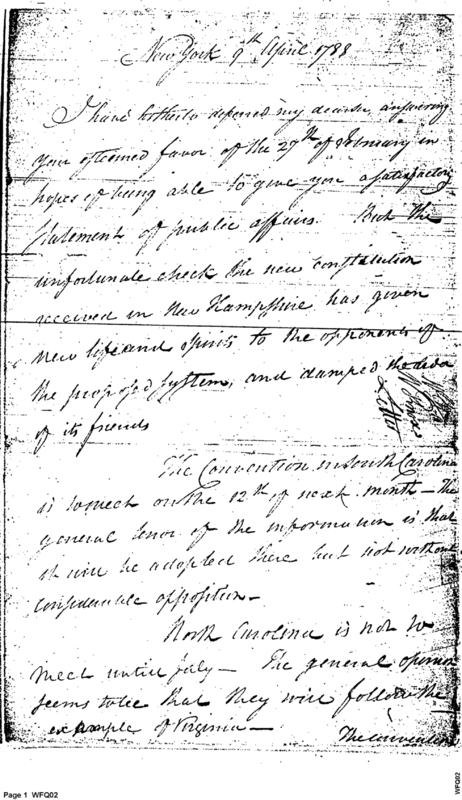 New York 9th April 1788
I have hitherto deferred my dearsir, answering
your esteemed favor of the 29th of February in
hopes of being able to give you a satisfactory
Statement of public affairs. But the
unfortunate check the new constitution
received in New Hampshire has given
new life and spirits to the opponents of
the proposed system, and damped the
of its friends
The Convention in South Carolina
is to meet on the 12th of next month – The
general tenor of the information is that
it will be adopted there but not without
considerable opposition –
North Carolina is not to
meet until July – The general opinion
seems to be that they will follow the
example of Virginia –
The convention
Page 1 WFQ02
WFQ02